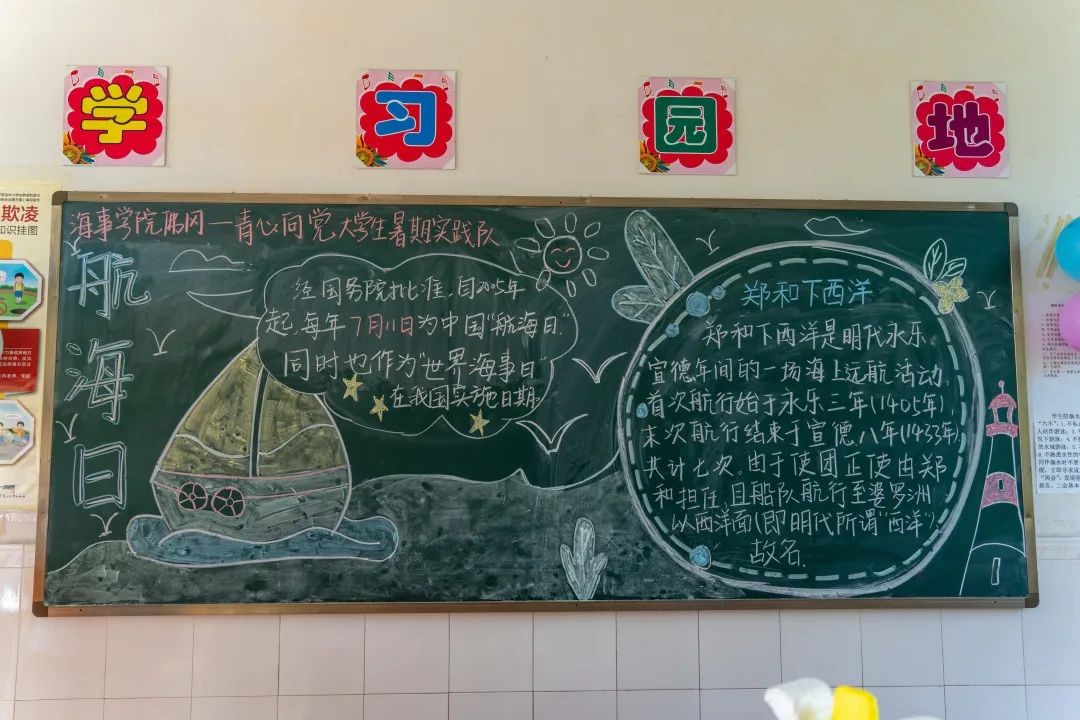 学习园地
海事学院腾冈—青心向党大学生暑期实践队
航海日
经国务院批准,自2005年
起,每年7月11日为中国"航海日"
同时也作为"世界海事日"
在我国实施日期
郑和下西洋
郑和下西洋是明代永乐、
宣德年间的一场海上远航活动,
首次航行始于永乐三年(1405年),
末次航行结束于宣德八年(1433年),
共计七次。由于使团正使由郑
和担任,且船队航行至婆罗洲
以西洋面(即明代所谓"西洋"),
故名.
欺凌
知识挂图